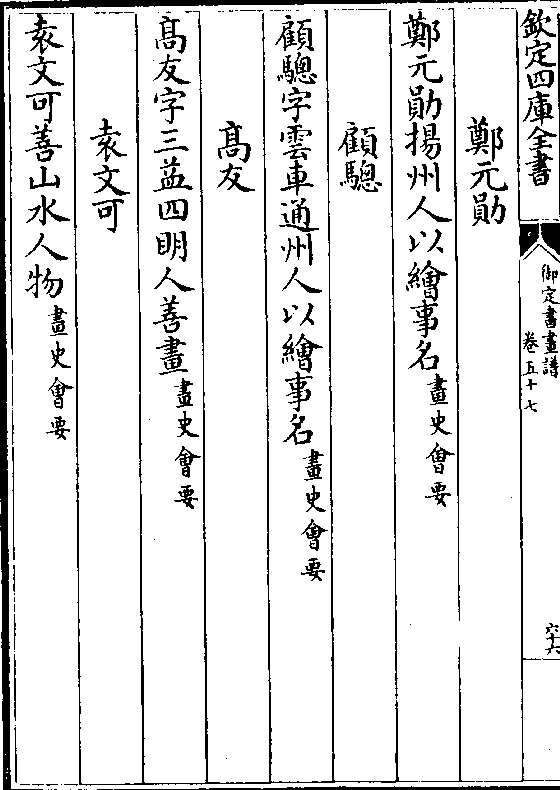 欽定四庫全書
御定書畫譜
卷五十七
六十六
鄭元勛
鄭元勛揚州人以繪事名畫史會要
顧驄
顧驄字雲車通州人以繪事名畫史會要
髙友
髙友字三益四明人善畫畫史會要
袁文可
袁文可善山水人物畫史會要